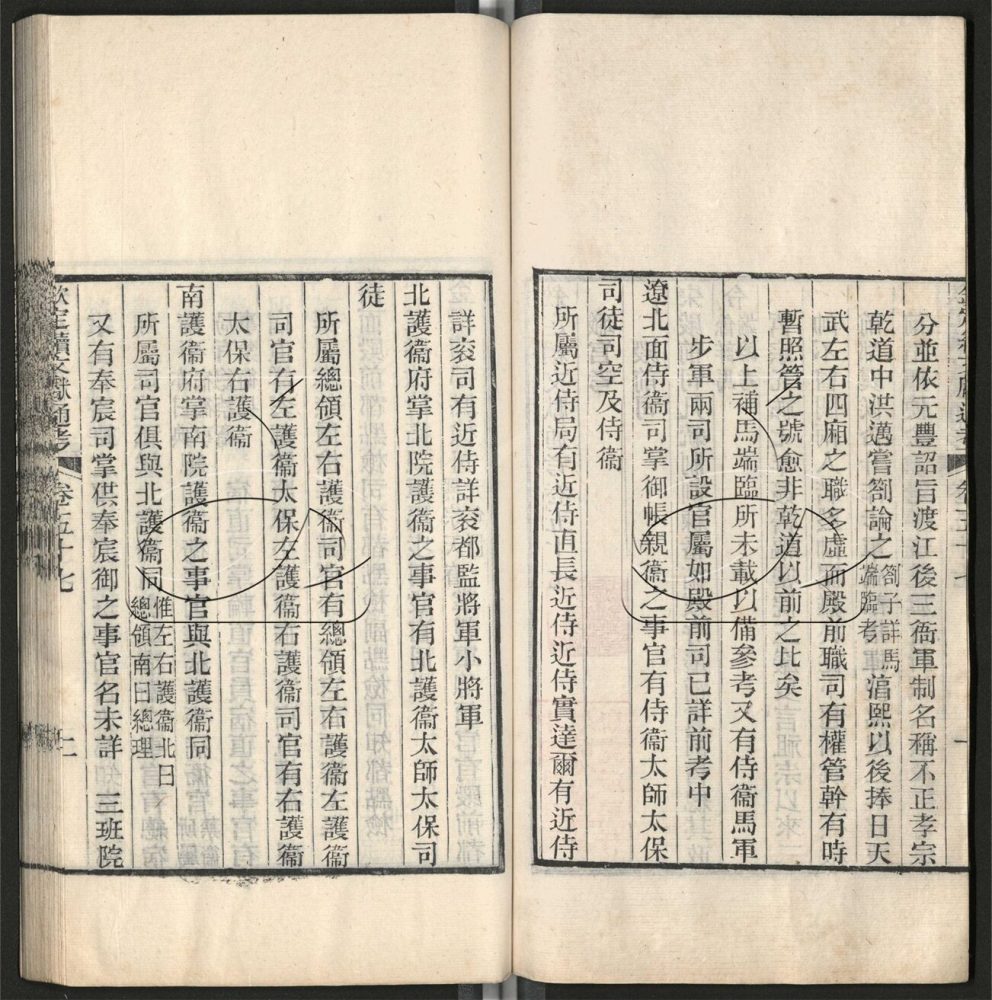 分並依元豐詔旨渡江後三衙軍制名稱不正孝宗
乾道中洪邁嘗劄論之劄子詳馬端臨考湻熙以後捧日天
武左右四廂之職多虛而殿前職司有權管幹有時
暫照管之號愈非乾道以前之比矣
以上補馬端臨所未載以備參考又有侍衞馬軍
步軍兩司所設官屬如殿前司已詳前考中
遼北面侍衞司掌御帳親衞之事官有侍衞太師太保
司徒司空及侍衞
所屬近侍局有近侍直長近侍近侍實達爾有近侍
詳衮司有近侍詳衮都監將軍小將軍
北護衞府掌北院護衞之事官有北護衞太師太保司
徒
所屬總領左右護衞司官有總領左右護衞左護衞
司官有左護衞太保左護衞右護衞司官有右護衞
太保右護衞
南護衞府掌南院護衞之事官與北護衞同
所屬司官俱與北護衞同惟左右護衞北曰總領南曰總理
又有奉宸司掌供奉宸御之事官名未詳三班院
欽定續文獻通考 卷五十七 二